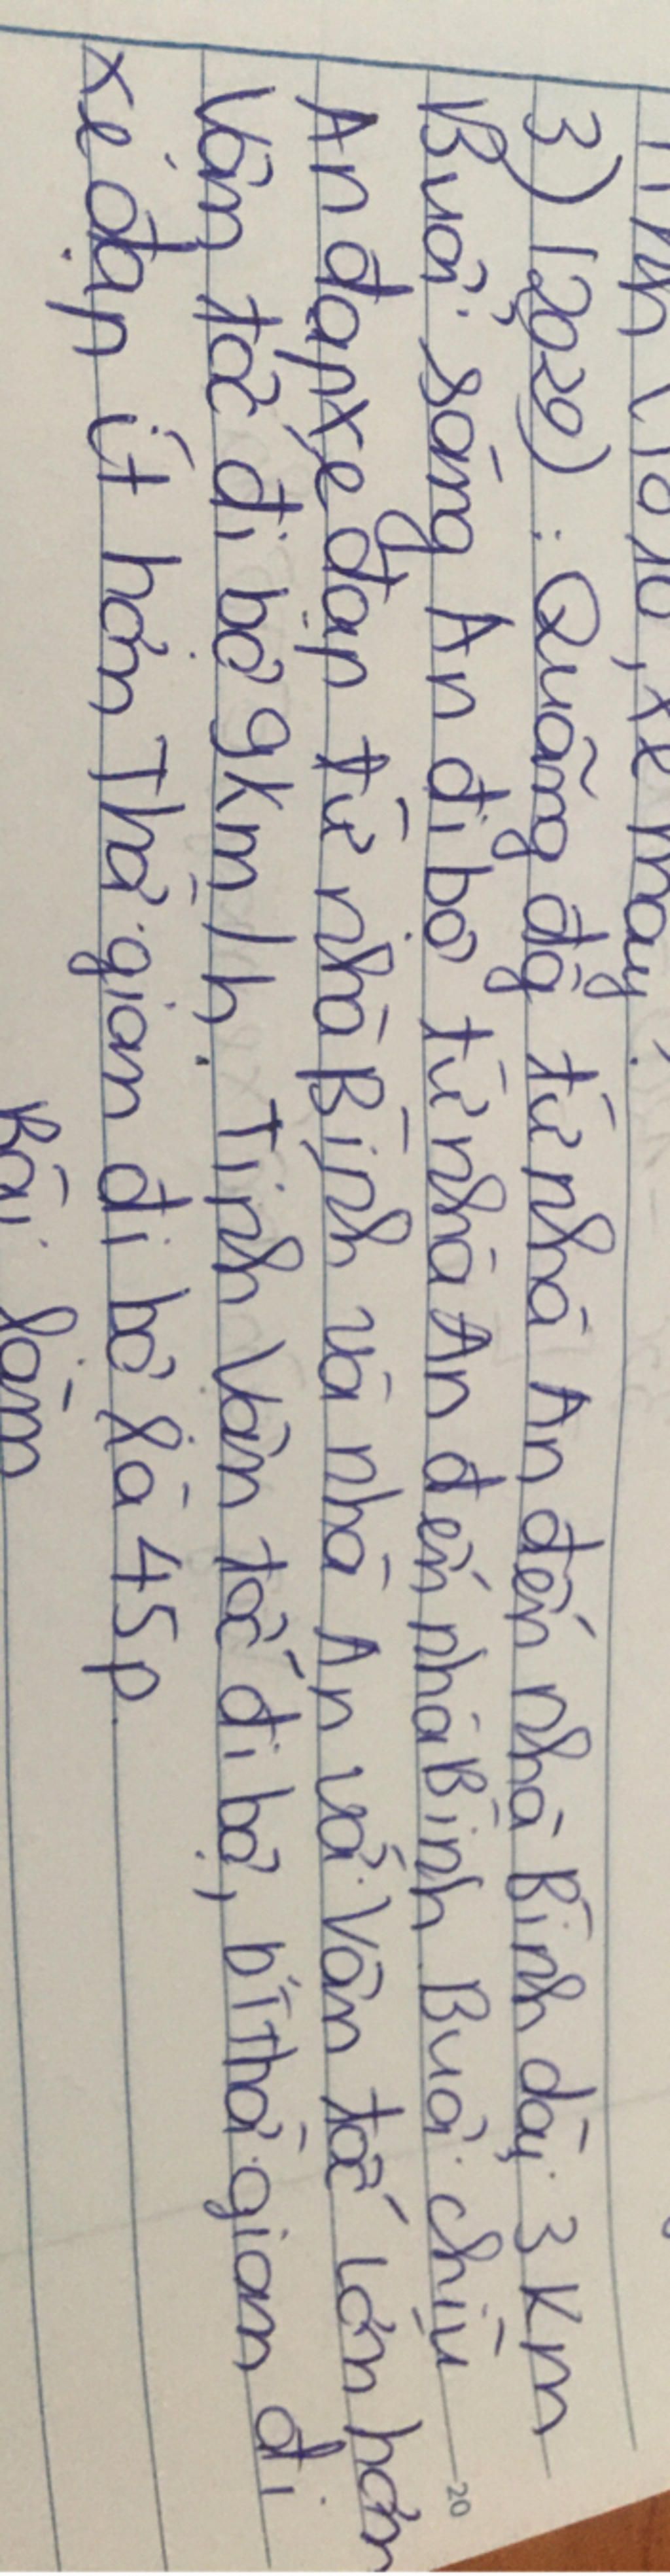 3) (2020): Quãng đg từ nhà An đến nhà Bình dài 3 Km
Buổi sáng An đi bộ từ nhà An đến nhà Bình. Buổi chiều
An đạp xe đạp từ nhà Bình về nhà An với Vận tốc lớn hơn
Vận tốc đi bộ 9km/h. Tính Vận tốc đi bộ, biết thời gian đi
xe đạp ít hơn Thời gian đi bộ là 45p
Bài làm
20